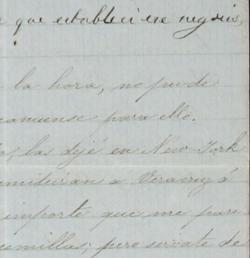 que estableciese negocis,
la hora, no pude
para ello.
las dejé en New York
remitieran a Veracruz á
importe que me pare
semillas; pero sirvate de